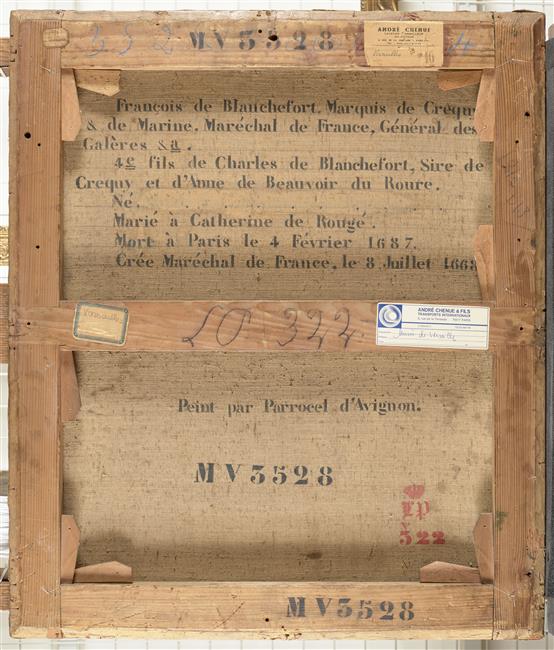 MV3528
4
ANDRÉ CHENUE
Versailles
16
François de Blanchefort, Marquis de Créquy
& de Marine, Maréchal de France, Général des
Galères &a.
4e fils de Charles de Blanchefort, Sire de
Crequy et d'Anne de Beauvoir du Roure.
Né. . . . . . . .
Marié à Catherine de Rougé.
Mort à Paris le 4 Février 1687.
Crée Maréchal de France, le 8 Juillet 1668
Versailles
LP 322
ANDRÉ CHENUE & FILS
TRANSPORTS INTERNATIONAUX
Peint par Parrocel d'Avignon.
MV3528
LP
322
MV3528